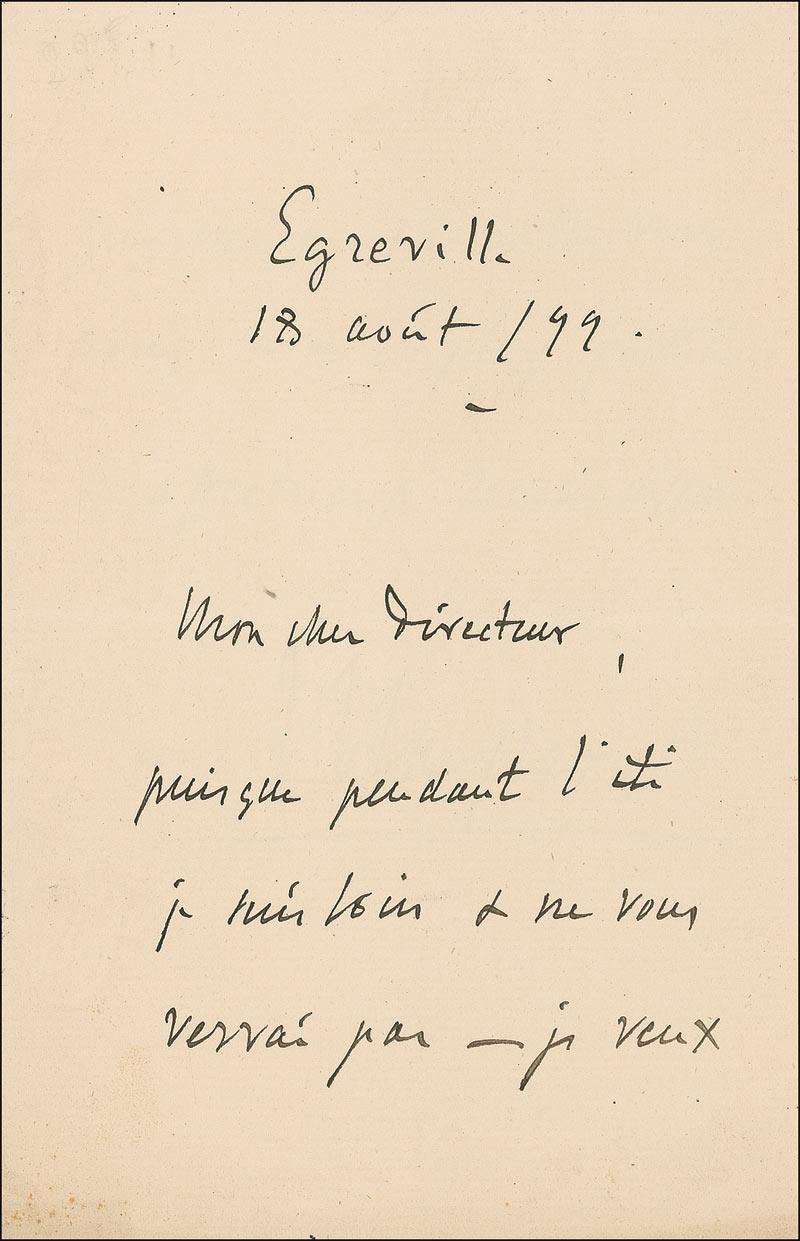 Egreville
18 août /99.
Mon cher Directeur,
puisque pendant l'été
je suis loin & ne vous
verrai pas — je veux